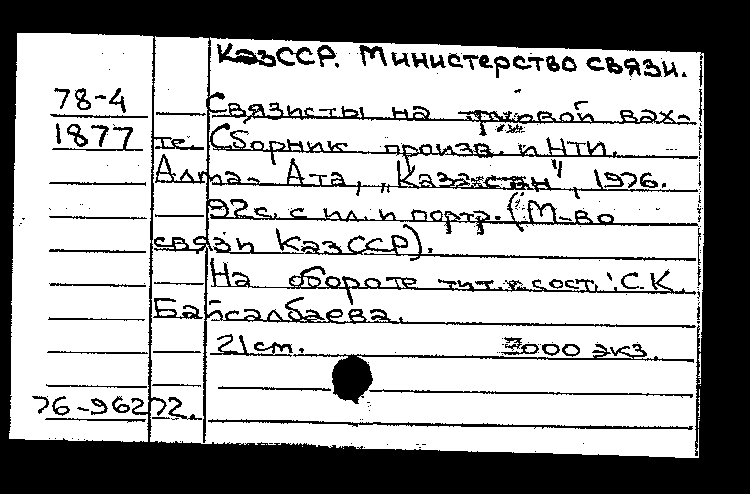 КазССР. Министерство связи.
78-4
Связисты на трудовой вах-
1877
те. Сборник произв. и НТИ.
Алма-Ата, „Казахстан", 1976.
92с. с ил. и портр. (М-во
связи КазССР).
На обороте тит. л. сост.: С.К.
Байсалбаева.
21 см. 3000 экз.
76-96272.